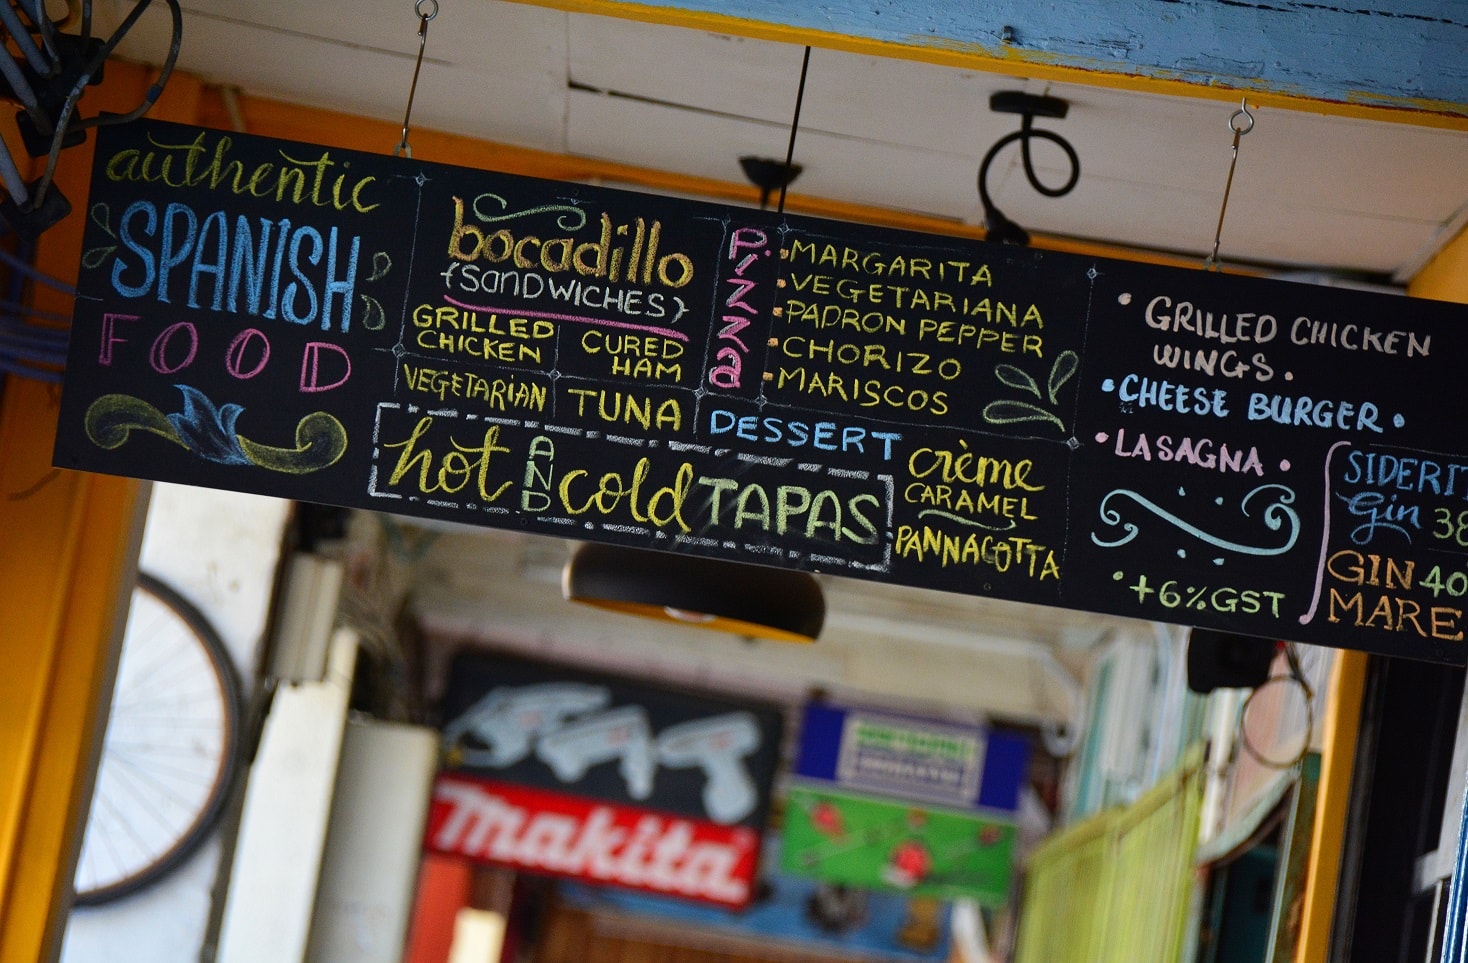 authentic
SPANISH
FOOD
bocadillo
{SANDWICHES}
GRILLED
CHICKEN
CURED
HAM
VEGETARIAN
TUNA
PIZZA
MARGARITA
VEGETARIANA
PADRON PEPPER
CHORIZO
MARISCOS
hot AND cold TAPAS
DESSERT
crème
CARAMEL
PANNACOTTA
• GRILLED CHICKEN
WINGS.
• CHEESE BURGER •
• LASAGNA •
• +6% GST
SIDERIT
Gin 38
GIN 40
MARE
makita